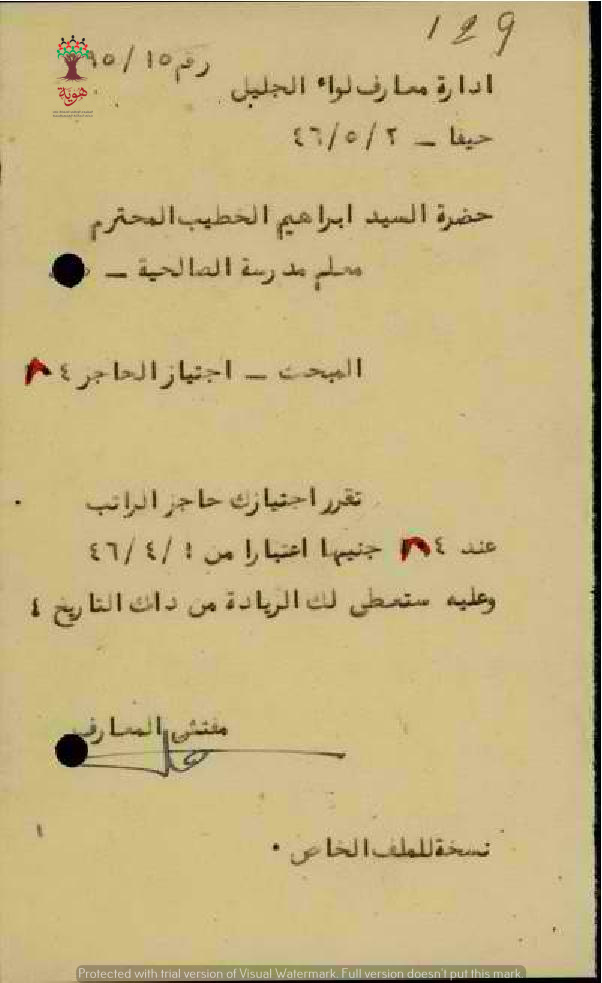 129
رقم ٩٥/١٥
ادارة معارف لواء الجليل
حيفا _ ٤٦/٥/٢
هوية
حضرة السيد ابراهيم الخطيب المحترم
معلم مدرسة الصالحية _
المبحث _ اجتياز الحاجز
تقرر اجتيازك حاجز الراتب
عند جنيها اعتبارا من ٤٦/٤/١
وعليه ستعطى لك الزيادة من ذلك التاريخ ٤
مفتش المعارف
نسخة للملف الخاص ٠
Protected with trial version of Visual Watermark. Full version doesn't put this mark.